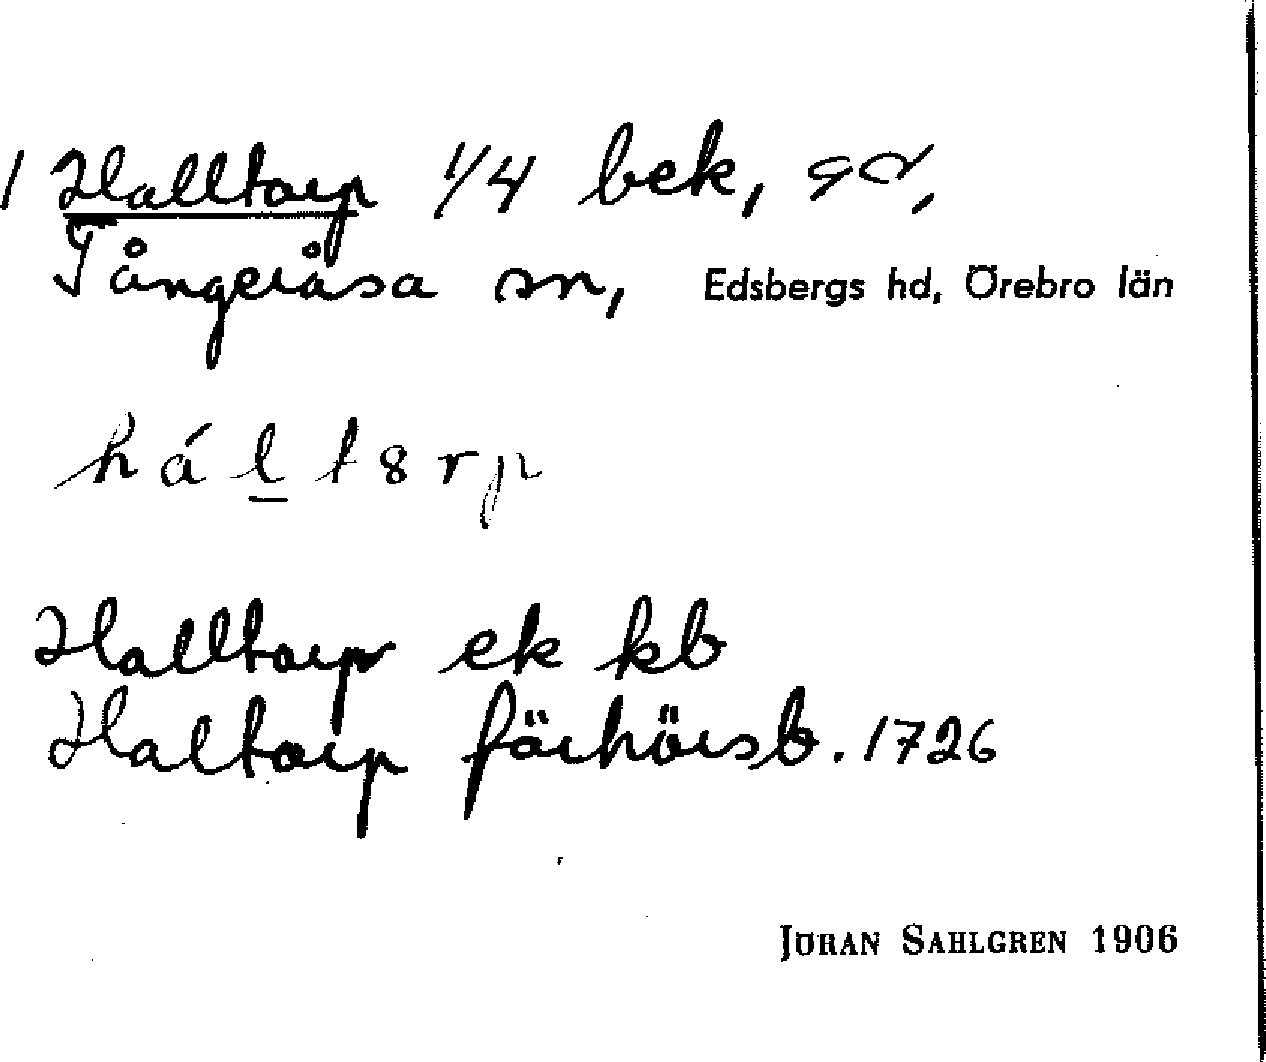 / Halltorp 1/4 bek, gd,
Tångeråsa sn, Edsbergs hd, Örebro län
há l̲ t 8 r p
Halltorp ek kb
Haltorp förhörsb. 1726
JÖRAN SAHLGREN 1906